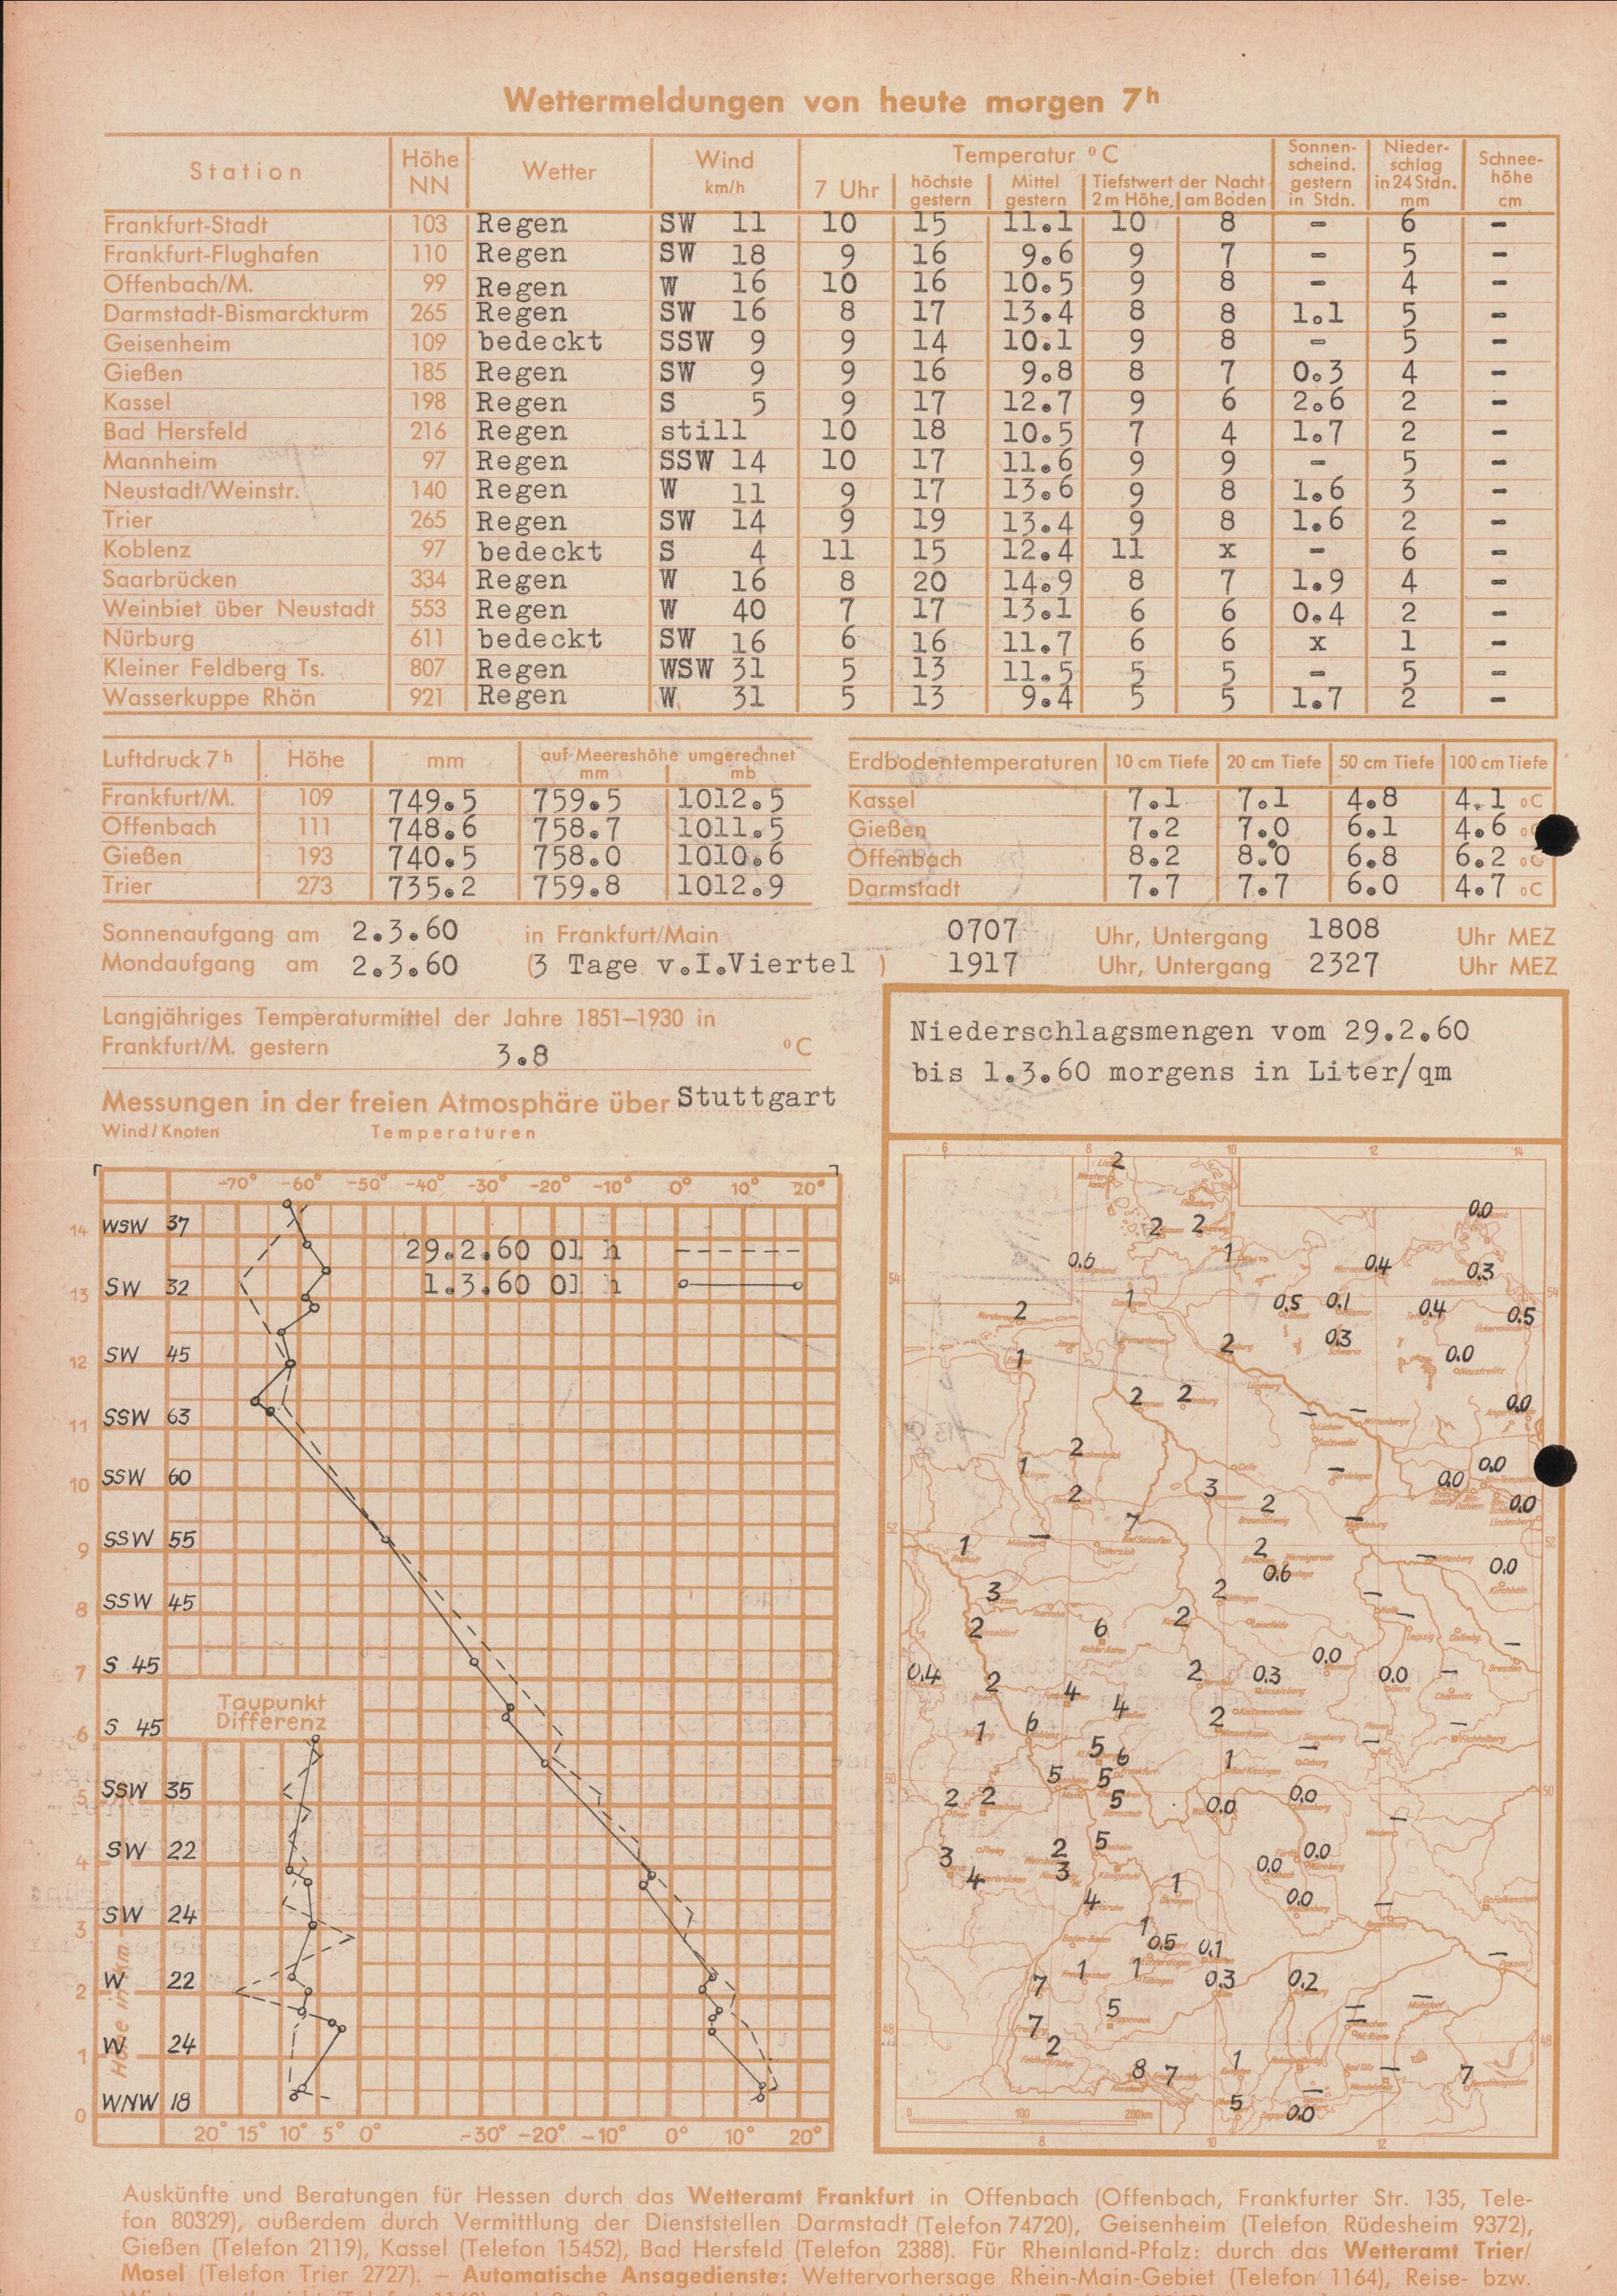 Wettermeldungen von heute morgen 7h
Station Höhe NN Wetter Wind km/h Temperatur °C Sonnenscheind. gestern in Stdn. Niederschlag in 24 Stdn. mm Schneehöhe cm
7 Uhr höchste gestern Mittel gestern Tiefstwert der Nacht 2 m Höhe, am Boden
Frankfurt-Stadt 103 Regen SW 11 10 15 11.1 10 8 - 6 -
Frankfurt-Flughafen 110 Regen SW 18 9 16 9.6 9 7 - 5 -
Offenbach/M. 99 Regen W 16 10 16 10.5 9 8 - 4 -
Darmstadt-Bismarckturm 265 Regen SW 16 8 17 13.4 8 8 1.1 5 -
Geisenheim 109 bedeckt SSW 9 9 14 10.1 9 8 - 5 -
Gießen 185 Regen SW 9 9 16 9.8 8 7 0.3 4 -
Kassel 198 Regen S 5 9 17 12.7 9 6 2.6 2 -
Bad Hersfeld 216 Regen still 10 18 10.5 7 4 1.7 2 -
Mannheim 97 Regen SSW 14 10 17 11.6 9 9 - 5 -
Neustadt/Weinstr. 140 Regen W 11 9 17 13.6 9 8 1.6 3 -
Trier 265 Regen SW 14 9 19 13.4 9 8 1.6 2 -
Koblenz 97 bedeckt S 4 11 15 12.4 11 x - 6 -
Saarbrücken 334 Regen W 16 8 20 14.9 8 7 1.9 4 -
Weinbiet über Neustadt 553 Regen W 40 7 17 13.1 6 6 0.4 2 -
Nürburg 611 bedeckt SW 16 6 16 11.7 6 6 x 1 -
Kleiner Feldberg Ts. 807 Regen WSW 31 5 13 11.5 5 5 - 5 -
Wasserkuppe Rhön 921 Regen W 31 5 13 9.4 5 5 1.7 2 -
Luftdruck 7h Höhe mm auf Meereshöhe umgerechnet mm mb
Frankfurt/M. 109 749.5 759.5 1012.5
Offenbach 111 748.6 758.7 1011.5
Gießen 193 740.5 758.0 1010.6
Trier 273 735.2 759.8 1012.9
Erdbodentemperaturen 10 cm Tiefe 20 cm Tiefe 50 cm Tiefe 100 cm Tiefe
Kassel 7.1 7.1 4.8 4.1 °C
Gießen 7.2 7.0 6.1 4.6 °C
Offenbach 8.2 8.0 6.8 6.2 °C
Darmstadt 7.7 7.7 6.0 4.7 °C
Sonnenaufgang am 2.3.60 in Frankfurt/Main 0707 Uhr, Untergang 1808 Uhr MEZ
Mondaufgang am 2.3.60 (3 Tage v.I.Viertel ) 1917 Uhr, Untergang 2327 Uhr MEZ
Langjähriges Temperaturmittel der Jahre 1851–1930 in
Frankfurt/M. gestern 3.8 °C
Messungen in der freien Atmosphäre über Stuttgart
Wind/Knoten Temperaturen
-70° -60° -50° -40° -30° -20° -10° 0° 10° 20°
14 WSW 37
29.2.60 01 h
1.3.60 01 h
13 SW 32
12 SW 45
11 SSW 63
10 SSW 60
9 SSW 55
8 SSW 45
7 S 45
Taupunkt
Differenz
6 S 45
5 SSW 35
4 SW 22
3 SW 24
2 W 22
1 W 24
0 WNW 18
Höhe in km
20° 15° 10° 5° 0° -30° -20° -10° 0° 10° 20°
Niederschlagsmengen vom 29.2.60
bis 1.3.60 morgens in Liter/qm
6 8 10 12 14
2
0.0
2 2
0.6 1 0.4 0.3
54 54
1 0.5 0.1 0.4 0.5
2
2 0.3 0.0
1
2 2 - - 0.0
2
1 - 0.0 0.0
2 3 2 0.0
52 7 - 52
1 - 2 - 0.0
0.6
3 2 -
2 6 2 - -
0.4 2 4 2 0.3 0.0 0.0 -
4
1 6 2 - - -
5 6 1
50 5 5 50
2 2 5 0.0 0.0 -
3 2 5 0.0 0.0
4 3
4 1 0.0 -
1 0.5 0.1 -
7 1 1 0.3 0.2 -
5 -
48 7 2 - 48
8 7 1 - 7
5 - 0.0
0 100 200km
8 10 12
Auskünfte und Beratungen für Hessen durch das Wetteramt Frankfurt in Offenbach (Offenbach, Frankfurter Str. 135, Tele-
fon 80329), außerdem durch Vermittlung der Dienststellen Darmstadt (Telefon 74720), Geisenheim (Telefon Rüdesheim 9372),
Gießen (Telefon 2119), Kassel (Telefon 15452), Bad Hersfeld (Telefon 2388). Für Rheinland-Pfalz: durch das Wetteramt Trier/
Mosel (Telefon Trier 2727). — Automatische Ansagedienste: Wettervorhersage Rhein-Main-Gebiet (Telefon 1164), Reise- bzw.